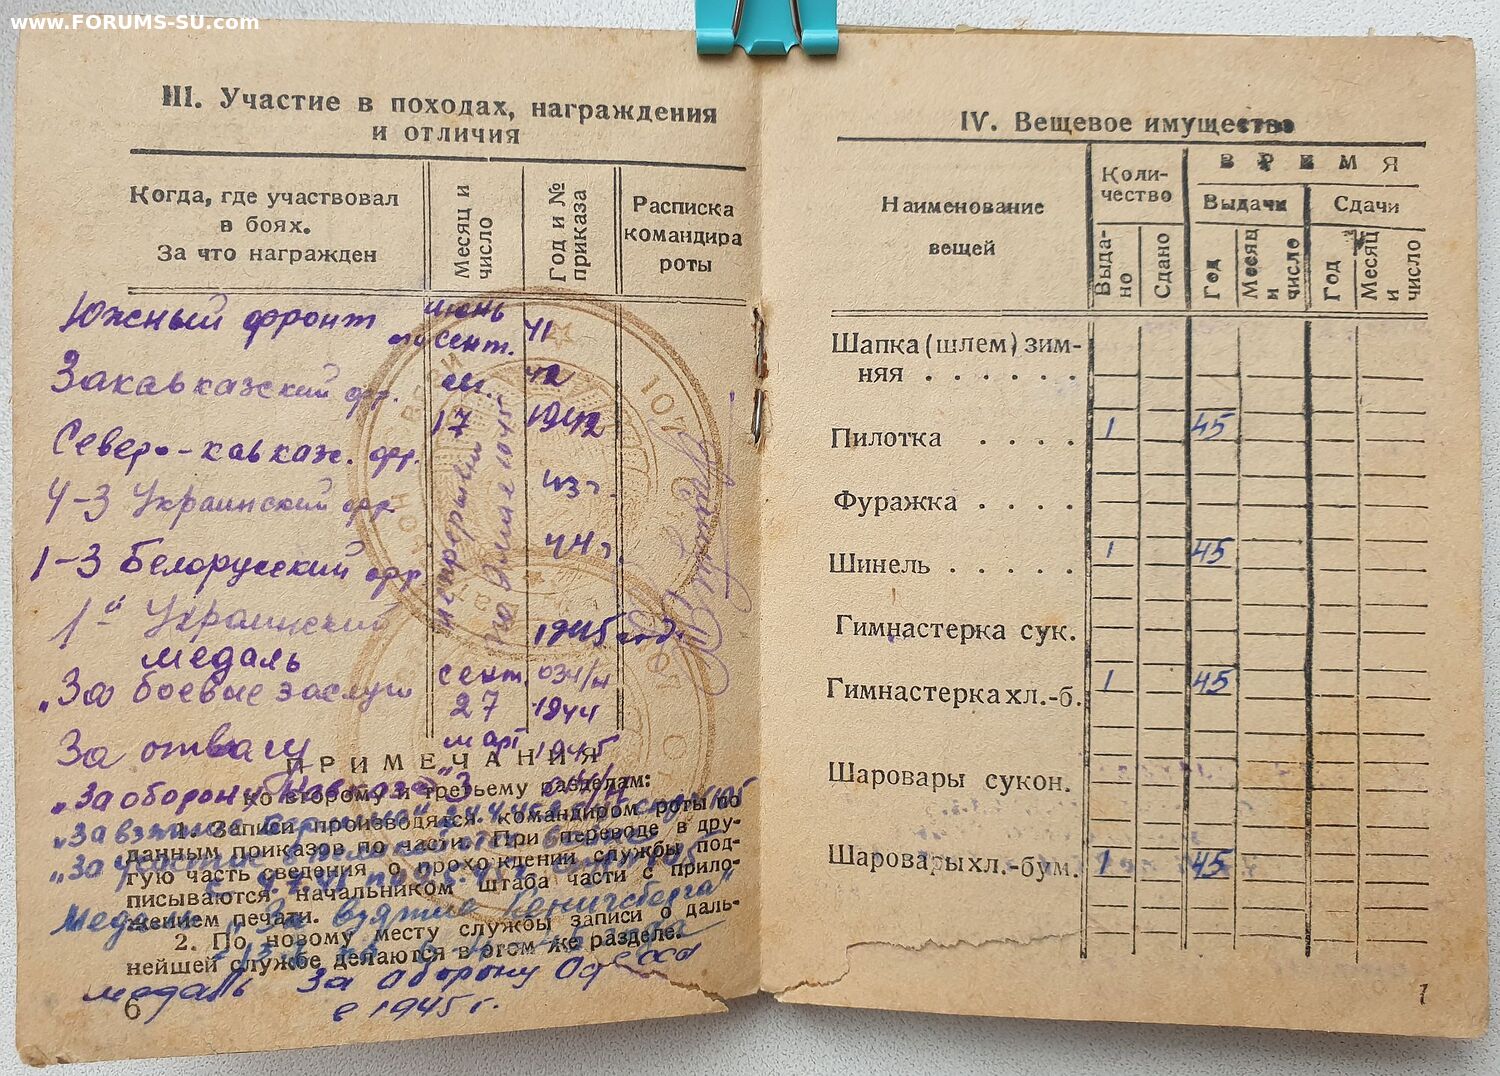 www.FORUMS-SU.com
III. Участие в походах, награждения
и отличия
Когда, где участвовал
в боях.
За что награжден
Месяц и
число
Год и №
приказа
Расписка
командира
роты
Южный фронт июнь
сент. 41
Закавказский фр. 42
17 1942
Северо-кавказ. фр.
43 г.
4-3 Украинский фр.
44 г.
1-3 Белорусский фр.
1й Украинский 1945 год.
медаль
"За боевые заслуги сент. 034/н
27 1944
За отвагу март 1945
ПРИМЕЧАНИЯ
"За оборону Кавказа" 3
ко второму и третьему разделам:
1. Записи производятся командиром роты по
данным приказов по части. При переводе в дру-
гую часть сведения о прохождении службы под-
писываются начальником штаба части с прило-
жением печати.
Медаль "За взятие Кенигсберга"
2. По новому месту службы записи о даль-
нейшей службе делаются в этом же разделе.
медаль За оборону Одесса
6
в 1945 г.
IV. Вещевое имущество
Наименование
вещей
Коли-
чество
ВРЕМЯ
Выдачи
Сдачи
Выда-
но
Сдано
Год
Месяц
и
число
Год
Месяц
и
число
Шапка (шлем) зим-
няя . . . . . .
Пилотка . . . . 1 45
Фуражка . . . .
Шинель . . . . . 1 45
Гимнастерка сук.
Гимнастерка хл.-б. 1 45
Шаровары сукон.
Шаровары хл.-бум. 1 45